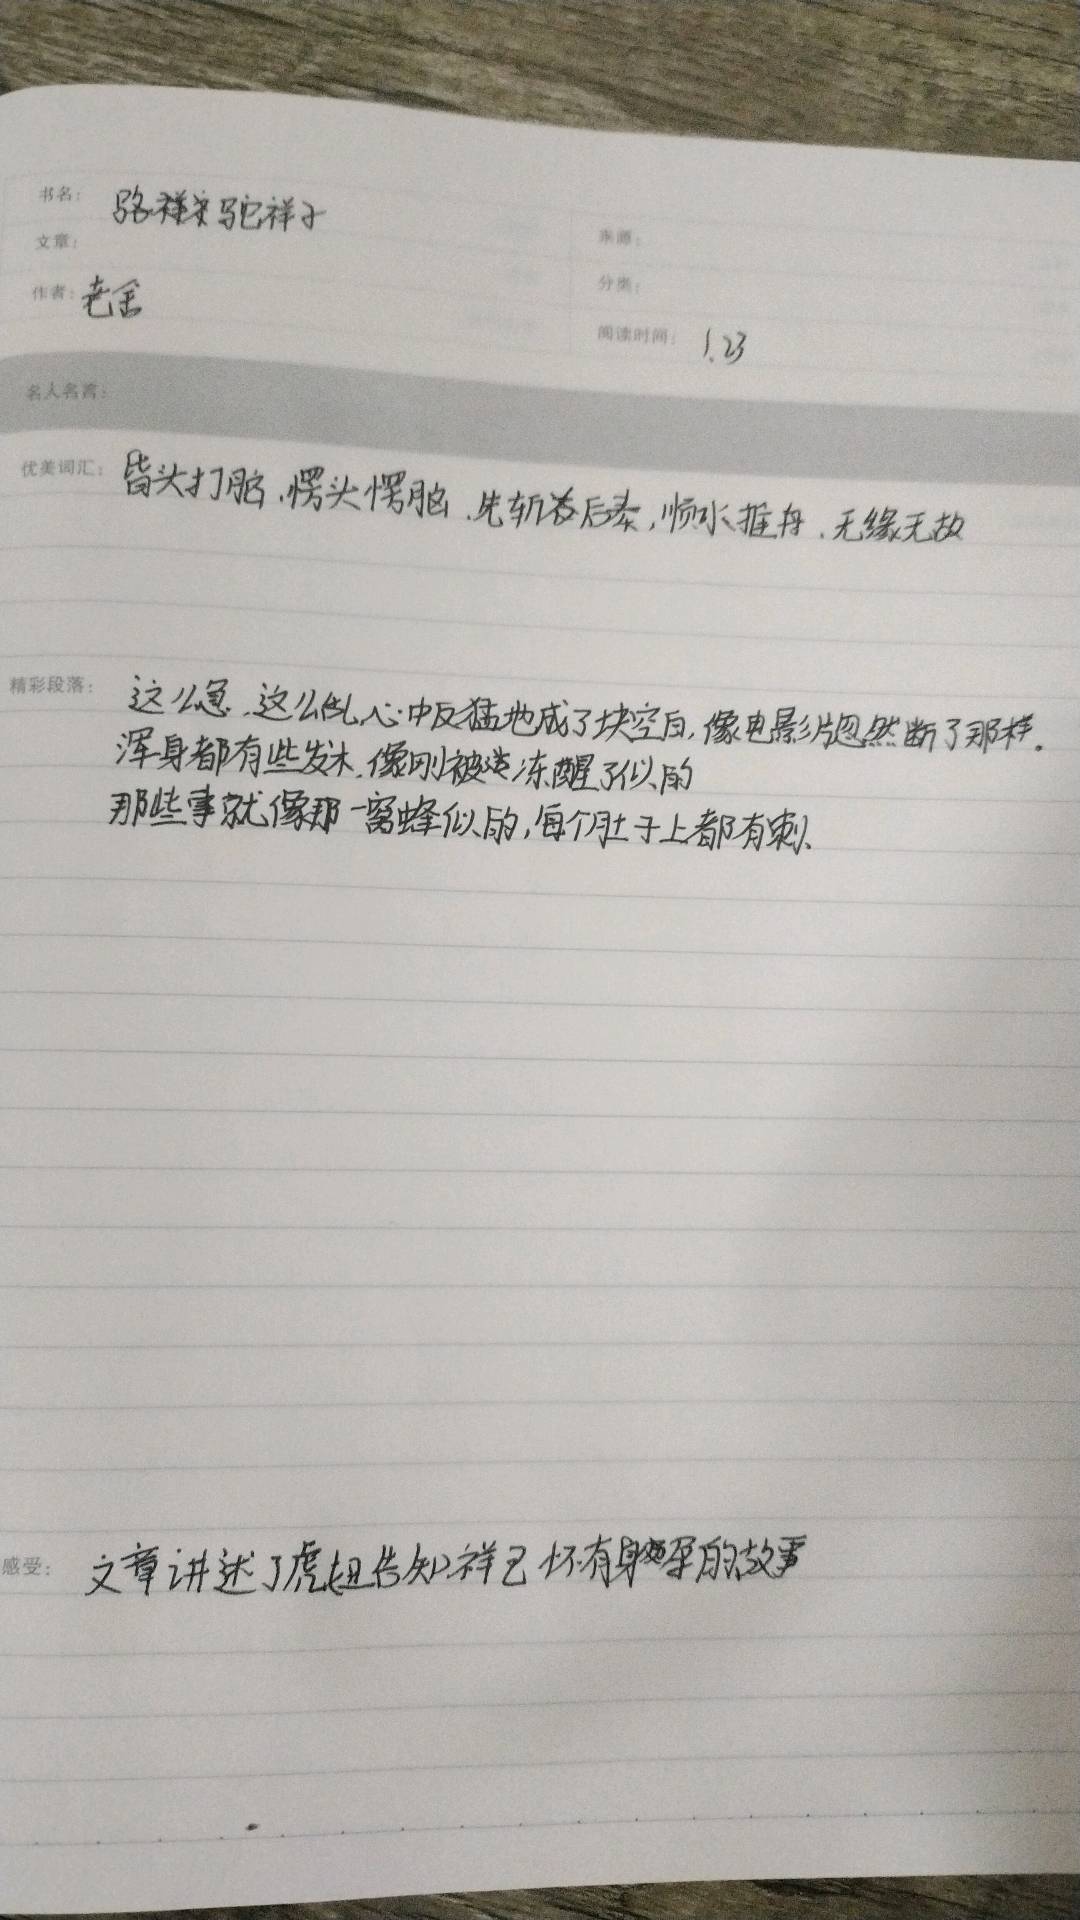 书名：
骆祥驼祥子
文章：
来源：
作者：老舍
分类：
阅读时间：1.23
名人名言：
优美词汇：皆头打脑、愣头愣脑、先斩后奏，顺水推舟、无缘无故
精彩段落：这么急、这么乱，心中反猛地成了块空白，像电影片忽然断了那样。
浑身都有些发木，像刚被冻醒了似的
那些事就像那一窝蜂似的，每个肚子上都有刺、
感受：文章讲述了虎妞告知祥子怀有身孕的故事